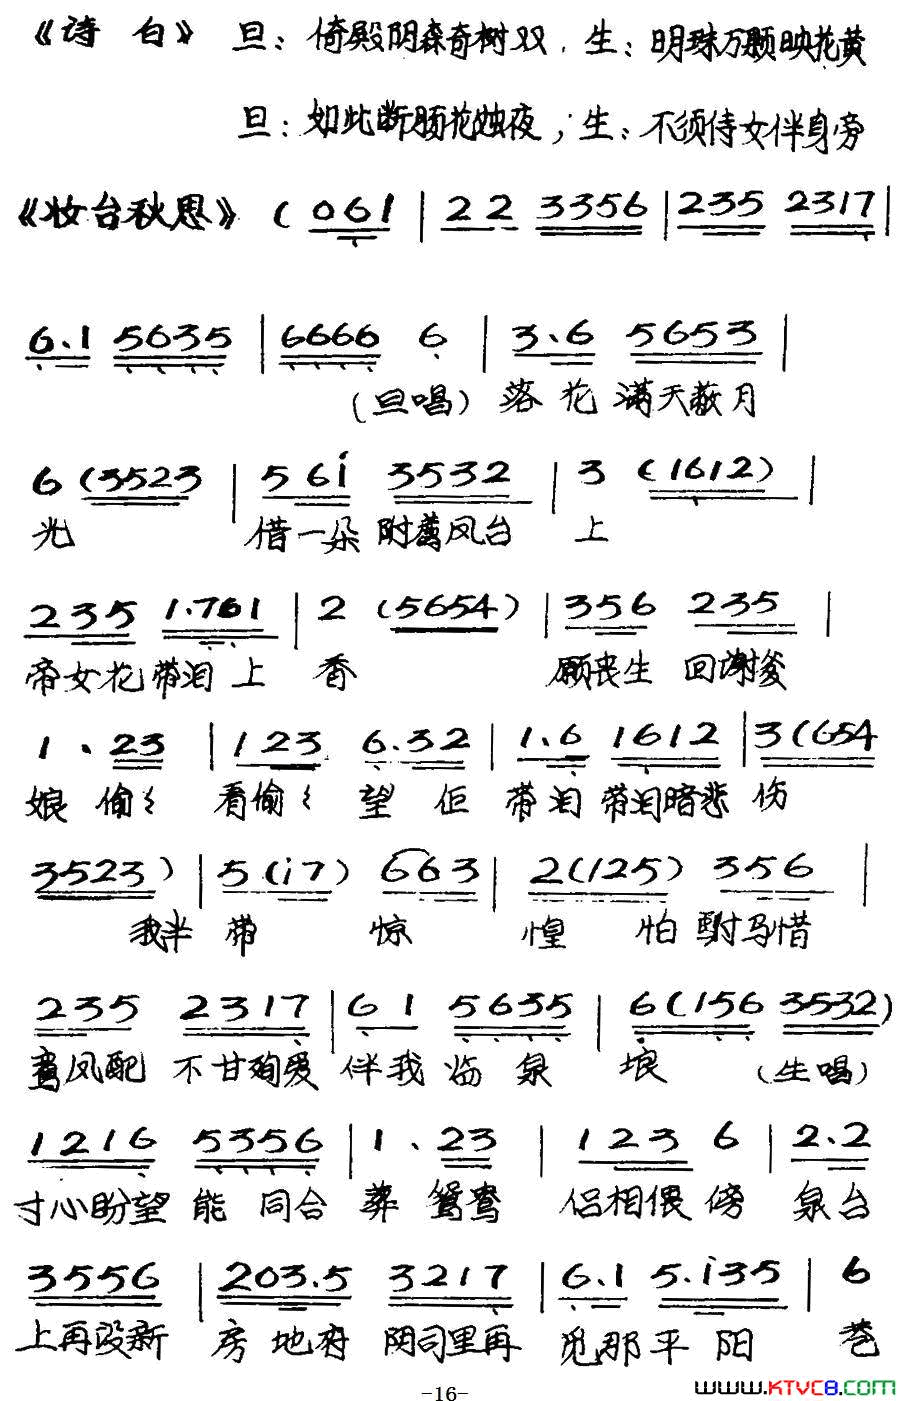 《诗白》 旦：倚殿阴森奇树双．生：明珠万颗映花黄
旦：如此断肠花烛夜，生：不须侍女伴身旁
《妆台秋思》 (061 | 22 3356 | 235 2317 |
6.1 5635 | 6666 6 | 3.6 5653 |
(旦唱) 落花满天蔽月
6 (3523 | 561 3532 | 3 (1612) |
光 借一朵附荐凤台 上
235 1.761 | 2 (5654) | 356 235 |
帝女花带泪上 香 愿丧生 回谢爹
1 . 23 | 123 6.32 | 1.6 1612 | 3(654
娘 偷〻 看偷〻 望 佢 带泪 带泪暗悲 伤
3523) | 5(i7) 663 | 2(125) 356 |
我半 带 惊 惶 怕 驸马惜
235 2317 | 61 5635 | 6(156 3532)
鸾凤配 不甘殉爱 伴我临 泉 埌 (生唱)
1216 5356 | 1 . 23 | 123 6 | 2.2
寸心盼望 能 同合 葬 鸳鸯 侣相偎 傍 泉台
3556 | 203.5 3217 | 6.1 5.i35 | 6
上再设新 房 地府 阴司里再 觅那平 阳 巷
-16-
www.KTVC8.COM